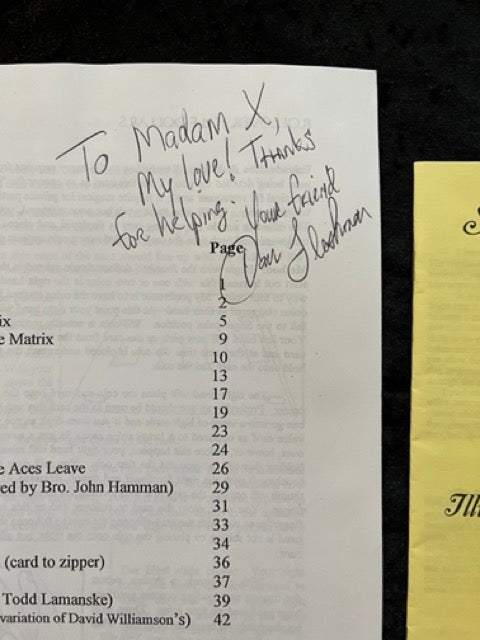 To Madam X,
My love! Thanks
for helping. Your friend
Dan Flashman
Page
1
2
ix 5
e Matrix 9
10
13
17
19
23
24
e Aces Leave 26
ed by Bro. John Hamman) 29
31
33
34
(card to zipper) 36
37
Todd Lamanske) 39
variation of David Williamson's) 42
Ill